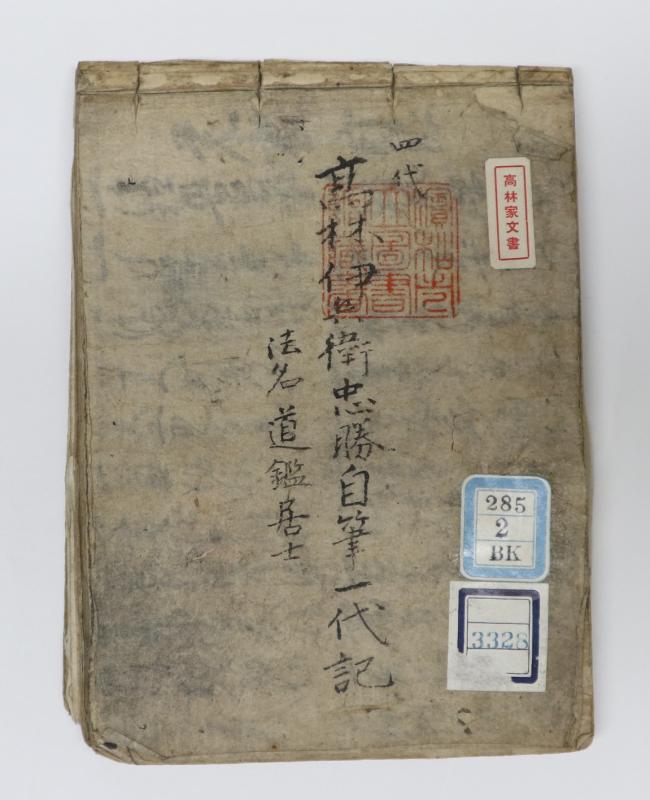 四代
高林伊兵衛忠勝自筆一代記
法名道鑑居士
高林家文書
285
2
BK
3328